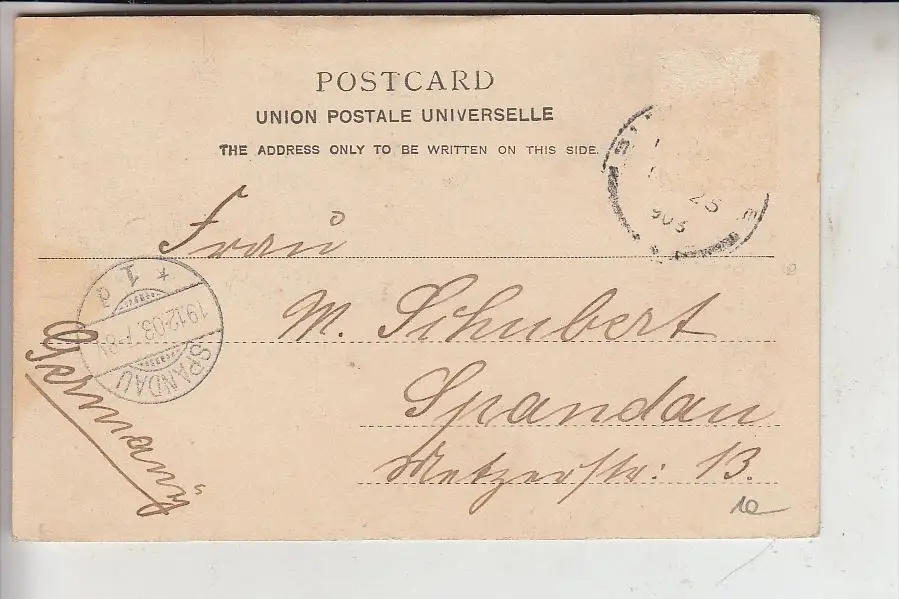 POSTCARD
UNION POSTALE UNIVERSELLE
THE ADDRESS ONLY TO BE WRITTEN ON THIS SIDE.
25
903
Frau
M. Schubert
Spandau
Metzerstr: 13.
Germany
SPANDAU
19.12.03.7-8V
* 1 d